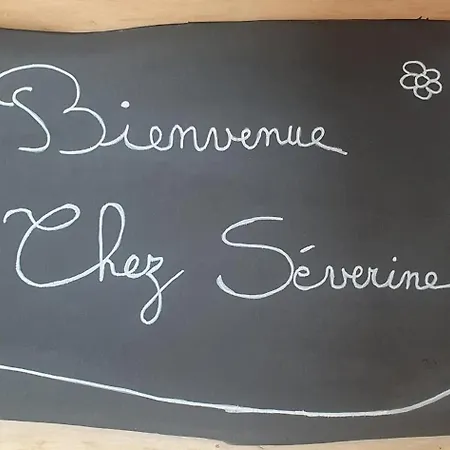 Bienvenue
Chez Séverine